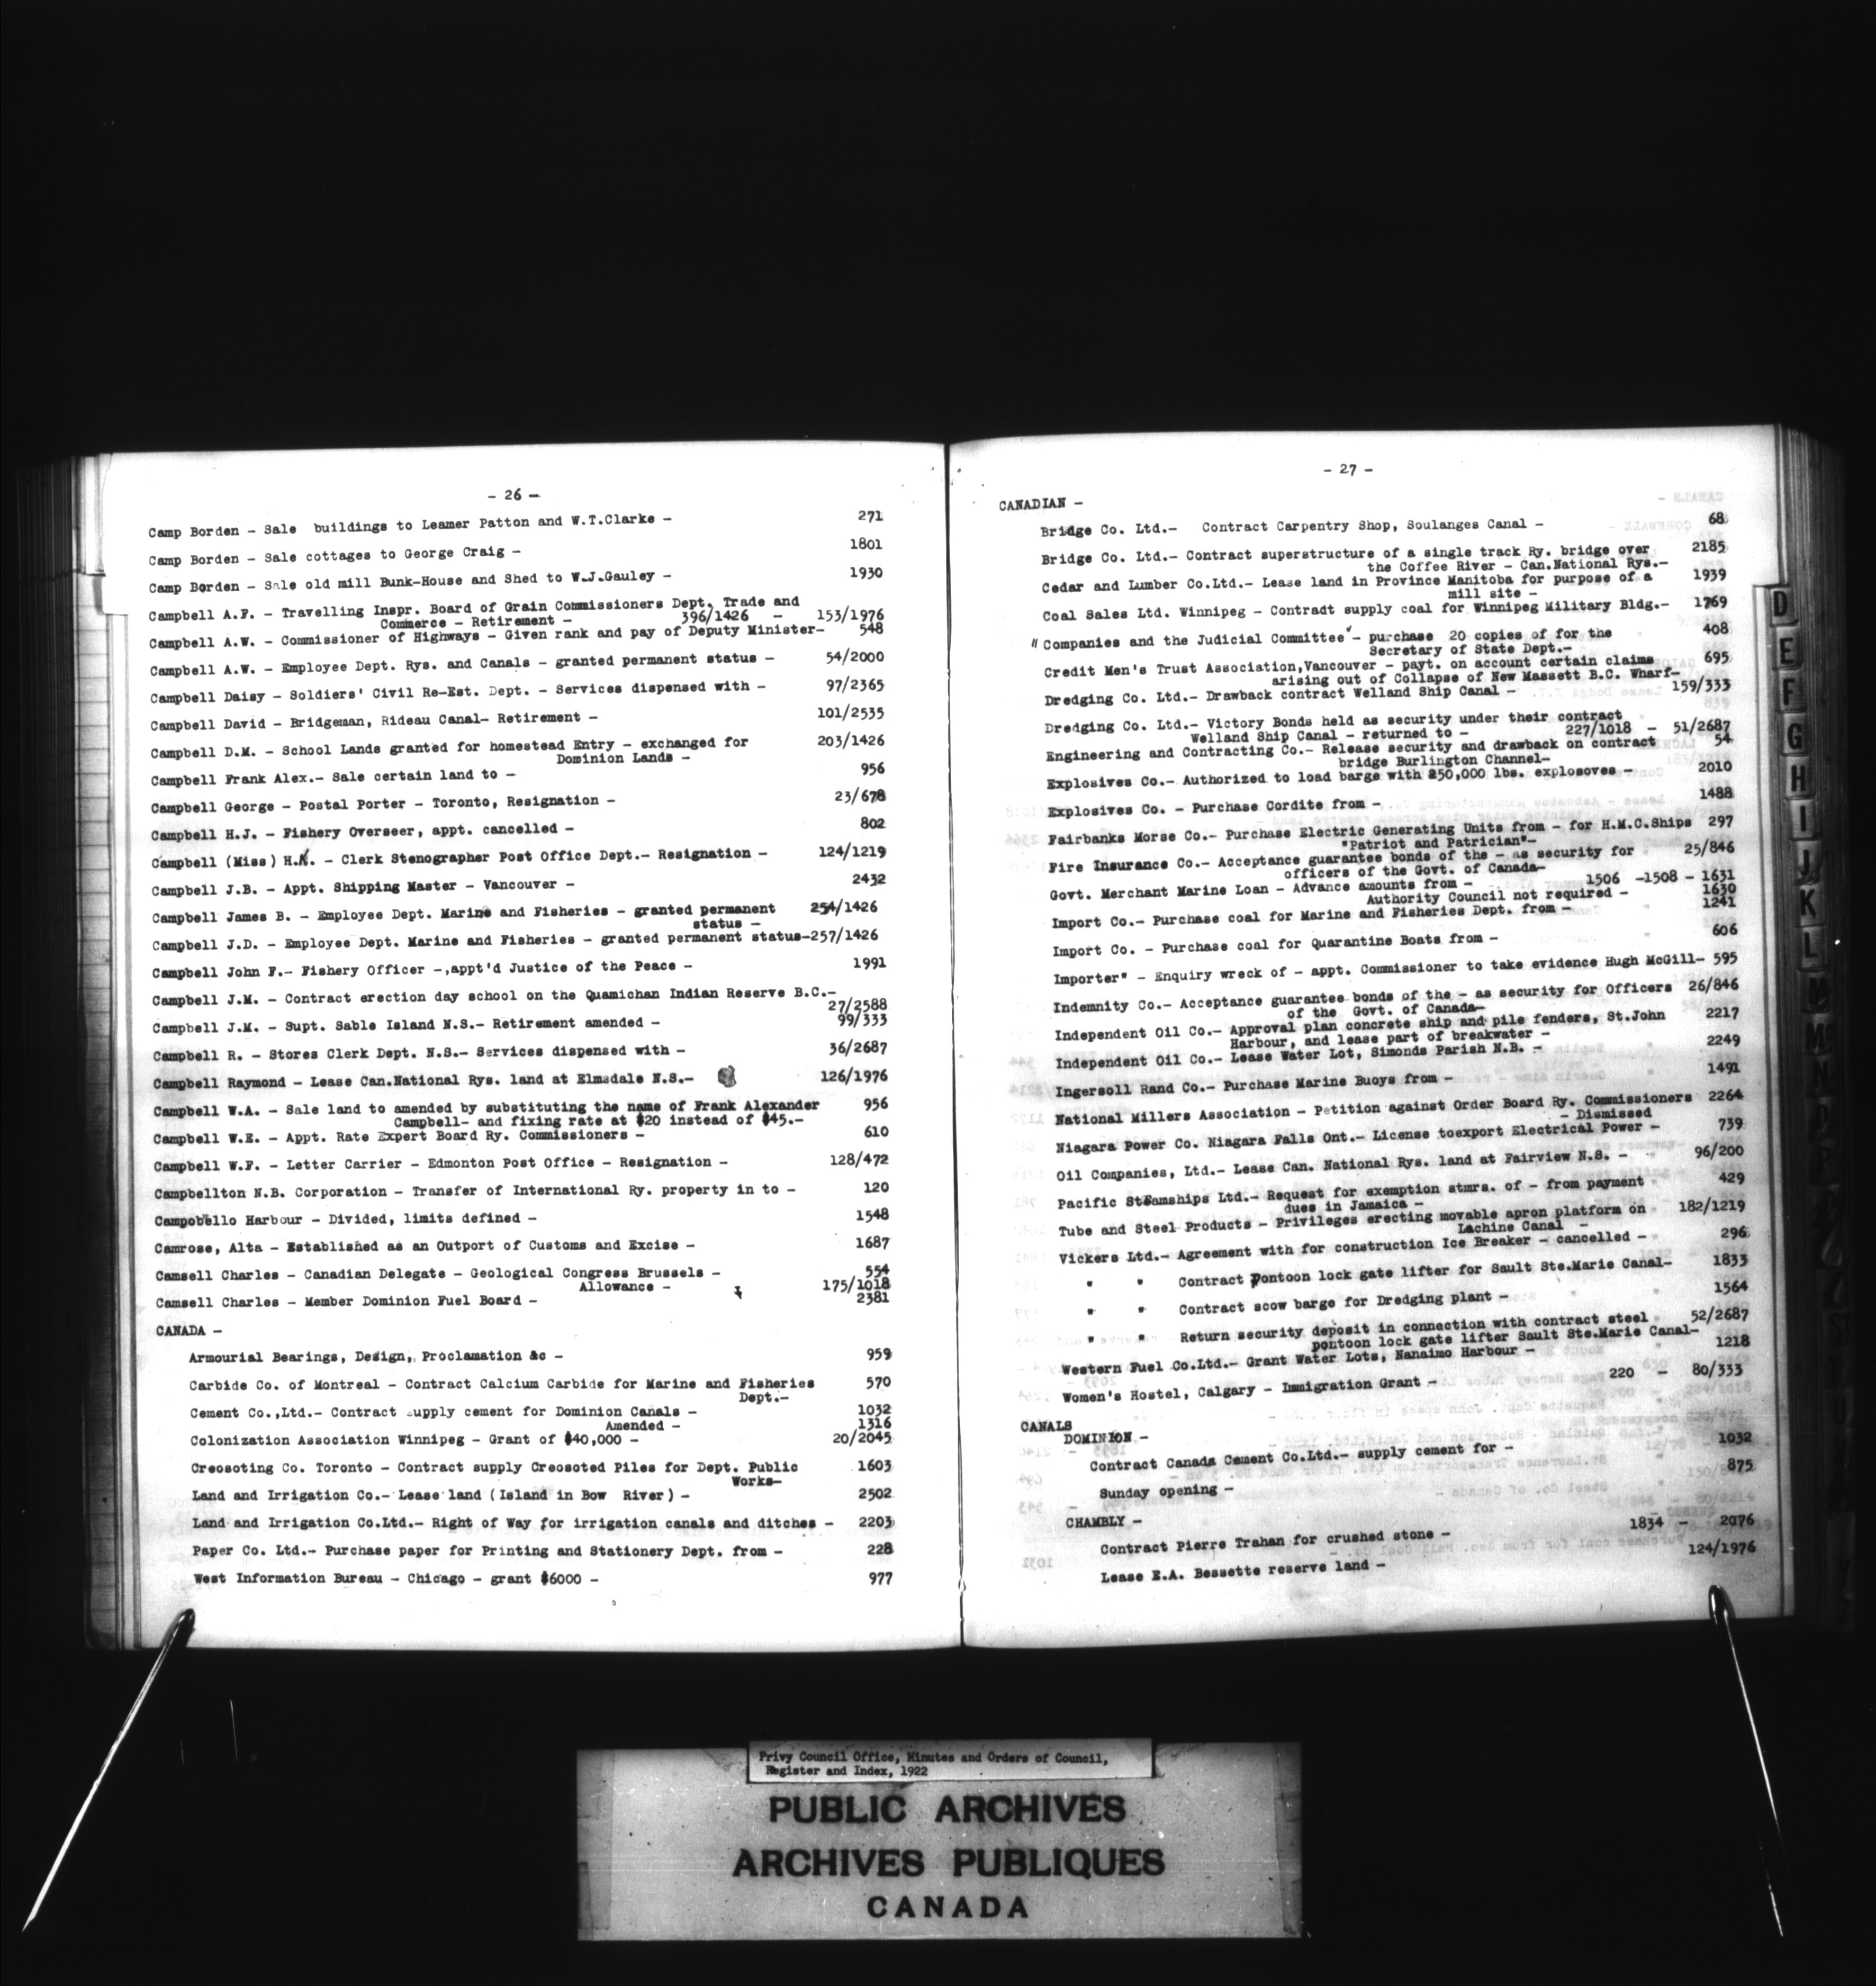 - 26 -
Camp Borden - Sale buildings to Leamer Patton and W.T.Clarke - 271
Camp Borden - Sale cottages to George Craig - 1801
Camp Borden - Sale old mill Bunk-House and Shed to W.J.Gauley - 1930
Campbell A.F. - Travelling Inspr. Board of Grain Commissioners Dept. Trade and
Commerce - Retirement - 396/1426 - 153/1976
Campbell A.W. - Commissioner of Highways - Given rank and pay of Deputy Minister- 548
Campbell A.W. - Employee Dept. Rys. and Canals - granted permanent status - 54/2000
Campbell Daisy - Soldiers' Civil Re-Est. Dept. - Services dispensed with - 97/2365
Campbell David - Bridgeman, Rideau Canal- Retirement - 101/2535
Campbell D.M. - School Lands granted for homestead Entry - exchanged for 203/1426
Dominion Lands -
Campbell Frank Alex.- Sale certain land to - 956
Campbell George - Postal Porter - Toronto, Resignation - 23/678
Campbell H.J. - Fishery Overseer, appt. cancelled - 802
Campbell (Miss) H.K. - Clerk Stenographer Post Office Dept.- Resignation - 124/1219
Campbell J.B. - Appt. Shipping Master - Vancouver - 2432
Campbell James B. - Employee Dept. Marine and Fisheries - granted permanent 254/1426
status -
Campbell J.D. - Employee Dept. Marine and Fisheries - granted permanent status-257/1426
Campbell John F.- Fishery Officer -,appt'd Justice of the Peace - 1991
Campbell J.M. - Contract erection day school on the Quamichan Indian Reserve B.C.-
27/2588
Campbell J.M. - Supt. Sable Island N.S.- Retirement amended - 99/333
Campbell R. - Stores Clerk Dept. N.S.- Services dispensed with - 36/2687
Campbell Raymond - Lease Can.National Rys. land at Elmsdale N.S.- 126/1976
Campbell W.A. - Sale land to amended by substituting the name of Frank Alexander 956
Campbell- and fixing rate at $20 instead of $45.-
Campbell W.E. - Appt. Rate Expert Board Ry. Commissioners - 610
Campbell W.F. - Letter Carrier - Edmonton Post Office - Resignation - 128/472
Campbellton N.B. Corporation - Transfer of International Ry. property in to - 120
Campobello Harbour - Divided, limits defined - 1548
Camrose, Alta - Established as an Outport of Customs and Excise - 1687
Camsell Charles - Canadian Delegate - Geological Congress Brussels - 554
Allowance - 175/1018
Camsell Charles - Member Dominion Fuel Board - 2381
CANADA -
Armourial Bearings, Design, Proclamation &c - 959
Carbide Co. of Montreal - Contract Calcium Carbide for Marine and Fisheries 570
Dept.-
Cement Co.,Ltd.- Contract supply cement for Dominion Canals - 1032
Amended - 1316
Colonization Association Winnipeg - Grant of $40,000 - 20/2045
Creosoting Co. Toronto - Contract supply Creosoted Piles for Dept. Public 1603
Works-
Land and Irrigation Co.- Lease land (Island in Bow River) - 2502
Land and Irrigation Co.Ltd.- Right of Way for irrigation canals and ditches - 2203
Paper Co. Ltd.- Purchase paper for Printing and Stationery Dept. from - 228
West Information Bureau - Chicago - grant $6000 - 977
- 27 -
CANADIAN -
Bridge Co. Ltd.- Contract Carpentry Shop, Soulanges Canal - 68
Bridge Co. Ltd.- Contract superstructure of a single track Ry. bridge over 2185
the Coffee River - Can.National Rys.-
Cedar and Lumber Co.Ltd.- Lease land in Province Manitoba for purpose of a 1939
mill site -
Coal Sales Ltd. Winnipeg - Contradt supply coal for Winnipeg Military Bldg.- 1769
"Companies and the Judicial Committee"- purchase 20 copies of for the 408
Secretary of State Dept.-
Credit Men's Trust Association,Vancouver - payt. on account certain claims 695
arising out of Collapse of New Massett B.C. Wharf-
Dredging Co. Ltd.- Drawback contract Welland Ship Canal - 159/333
Dredging Co. Ltd.- Victory Bonds held as security under their contract
Welland Ship Canal - returned to - 227/1018 - 51/2687
Engineering and Contracting Co.- Release security and drawback on contract 54
bridge Burlington Channel-
Explosives Co.- Authorized to load barge with 250,000 lbs. explosoves - 2010
Explosives Co. - Purchase Cordite from - 1488
Fairbanks Morse Co.- Purchase Electric Generating Units from - for H.M.C.Ships 297
"Patriot and Patrician"-
Fire Insurance Co.- Acceptance guarantee bonds of the - as security for 25/846
officers of the Govt. of Canada-
Govt. Merchant Marine Loan - Advance amounts from - 1506 -1508 - 1631
Authority Council not required - 1630
Import Co.- Purchase coal for Marine and Fisheries Dept. from - 1241
Import Co. - Purchase coal for Quarantine Boats from - 606
Importer" - Enquiry wreck of - appt. Commissioner to take evidence Hugh McGill- 595
Indemnity Co.- Acceptance guarantee bonds of the - as security for Officers 26/846
of the Govt. of Canada-
Independent Oil Co.- Approval plan concrete ship and pile fenders, St.John 2217
Harbour, and lease part of breakwater -
Independent Oil Co.- Lease Water Lot, Simonds Parish N.B. - 2249
Ingersoll Rand Co.- Purchase Marine Buoys from - 1491
National Millers Association - Petition against Order Board Ry. Commissioners 2264
- Dismissed
Niagara Power Co. Niagara Falls Ont.- License toexport Electrical Power - 739
Oil Companies, Ltd.- Lease Can. National Rys. land at Fairview N.S. - 96/200
Pacific Steamships Ltd.- Request for exemption stmrs. of - from payment 429
dues in Jamaica -
Tube and Steel Products - Privileges erecting movable apron platform on 182/1219
Lachine Canal -
Vickers Ltd.- Agreement with for construction Ice Breaker - cancelled - 296
" " Contract Pontoon lock gate lifter for Sault Ste.Marie Canal- 1833
" " Contract scow barge for Dredging plant - 1564
" " Return security deposit in connection with contract steel 52/2687
pontoon lock gate lifter Sault Ste.Marie Canal-
Western Fuel Co.Ltd.- Grant Water Lots, Nanaimo Harbour - 1218
Women's Hostel, Calgary - Immigration Grant - 220 - 80/333
CANALS
DOMINION -
Contract Canada Cement Co.Ltd.- supply cement for - 1032
Sunday opening - 875
CHAMBLY -
Contract Pierre Trahan for crushed stone - 1834 - 2076
Lease E.A. Bessette reserve land - 124/1976
D
E
F
G
H
I
J
K
L
M
Privy Council Office, Minutes and Orders of Council,
Register and Index, 1922
PUBLIC ARCHIVES
ARCHIVES PUBLIQUES
CANADA